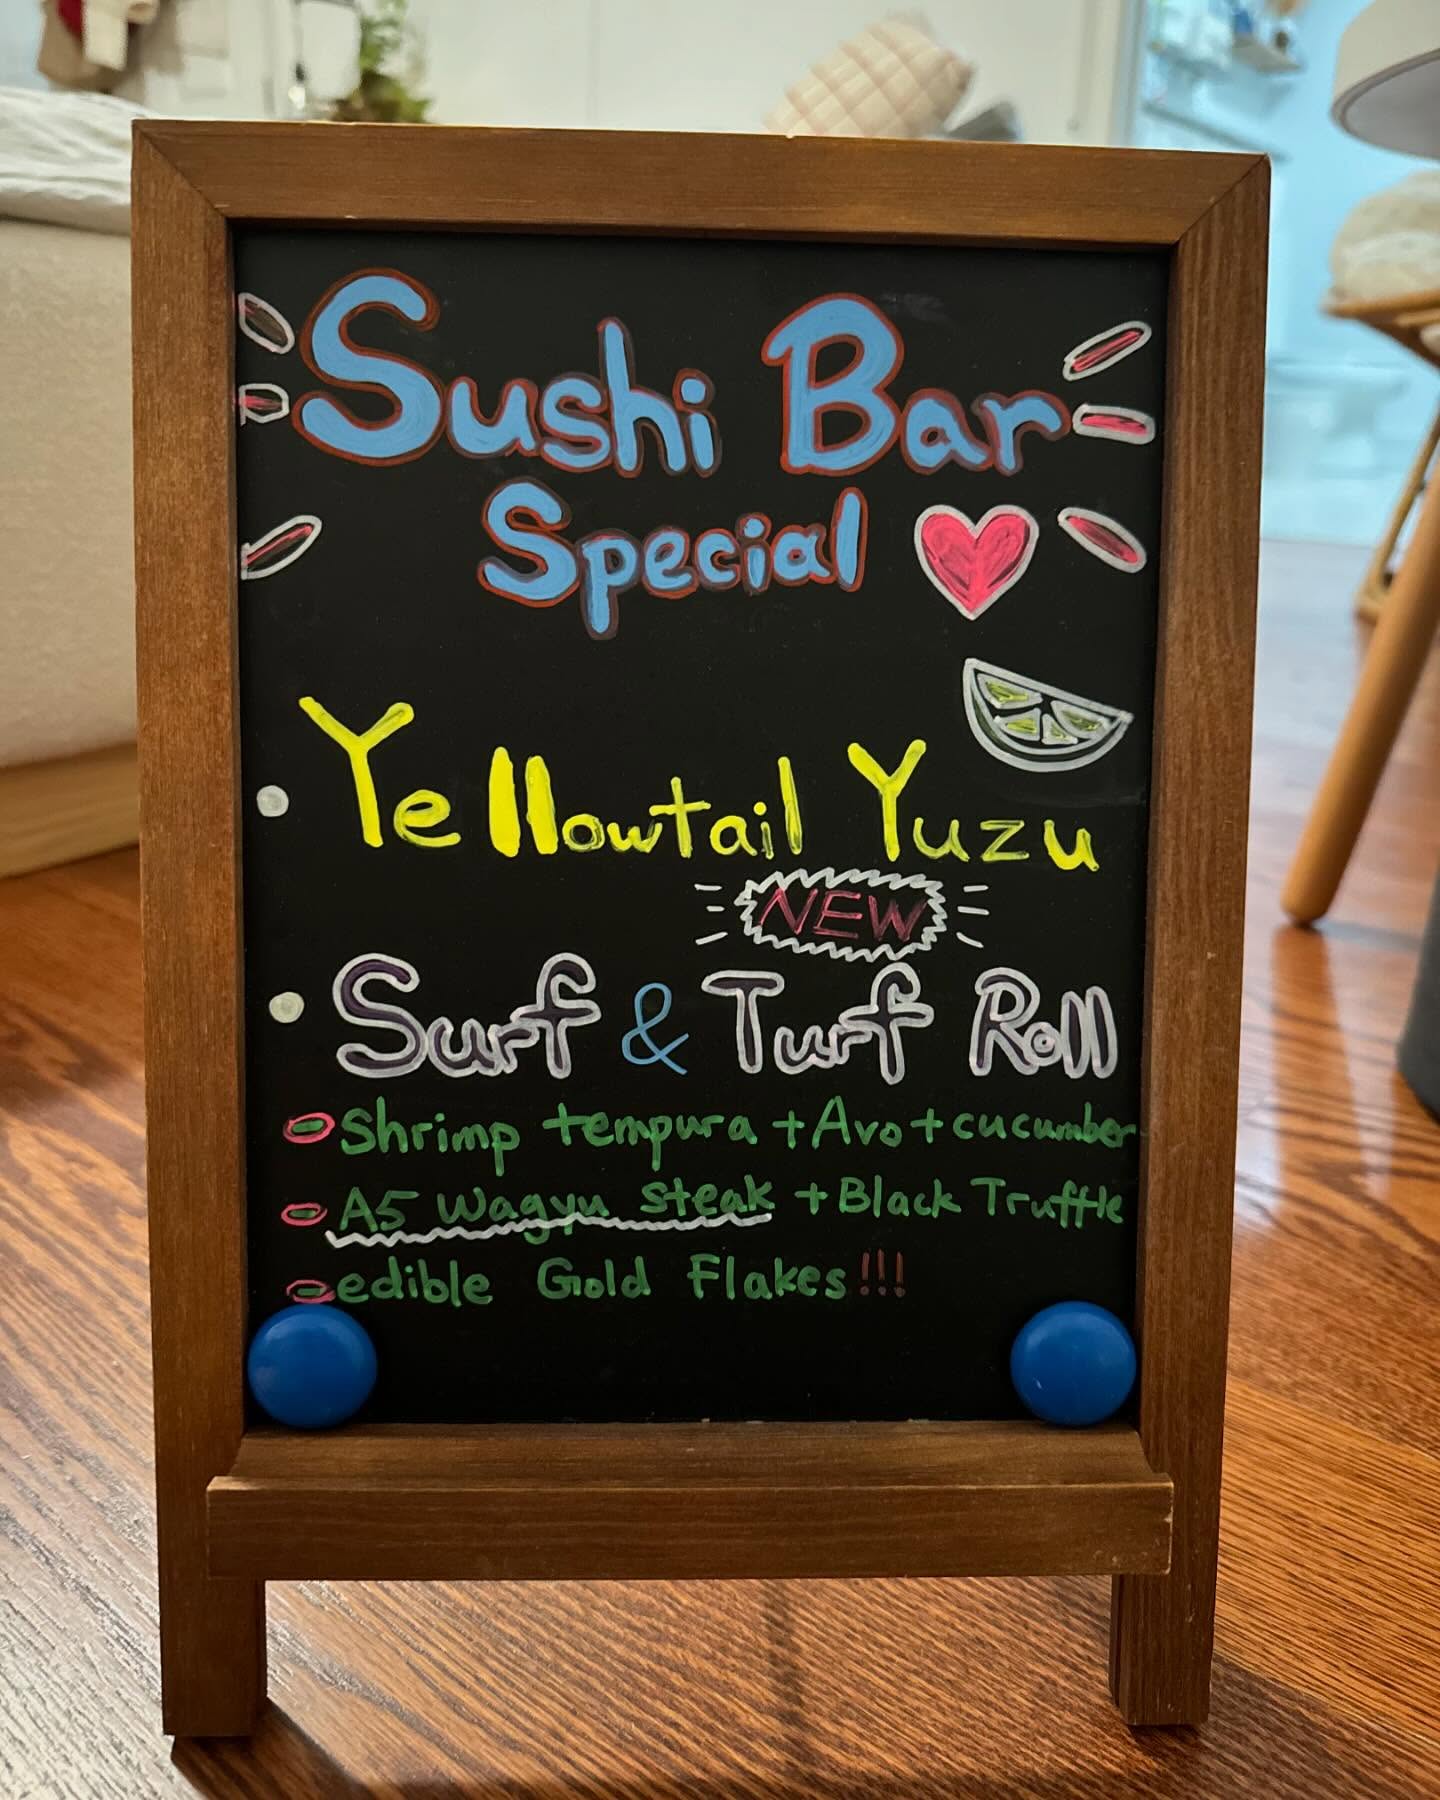 Sushi Bar
Special
Yellowtail Yuzu
NEW
Surf & Turf Roll
Shrimp tempura + Avo + cucumber
A5 Wagyu steak + Black Truffle
edible Gold Flakes!!!